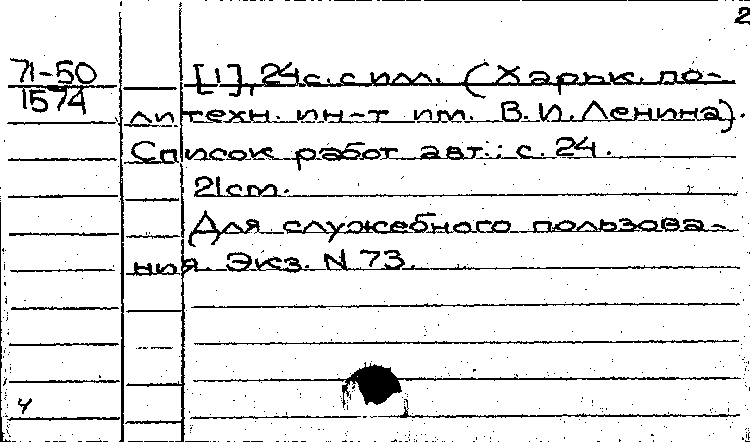 2
71-50
1574
[1], 24 с. с илл. (Харьк. по-
литехн. ин-т им. В.И. Ленина).
Список работ авт.: с. 24.
21 cm.
Для служебного пользова-
ния. Экз. N 73.
4